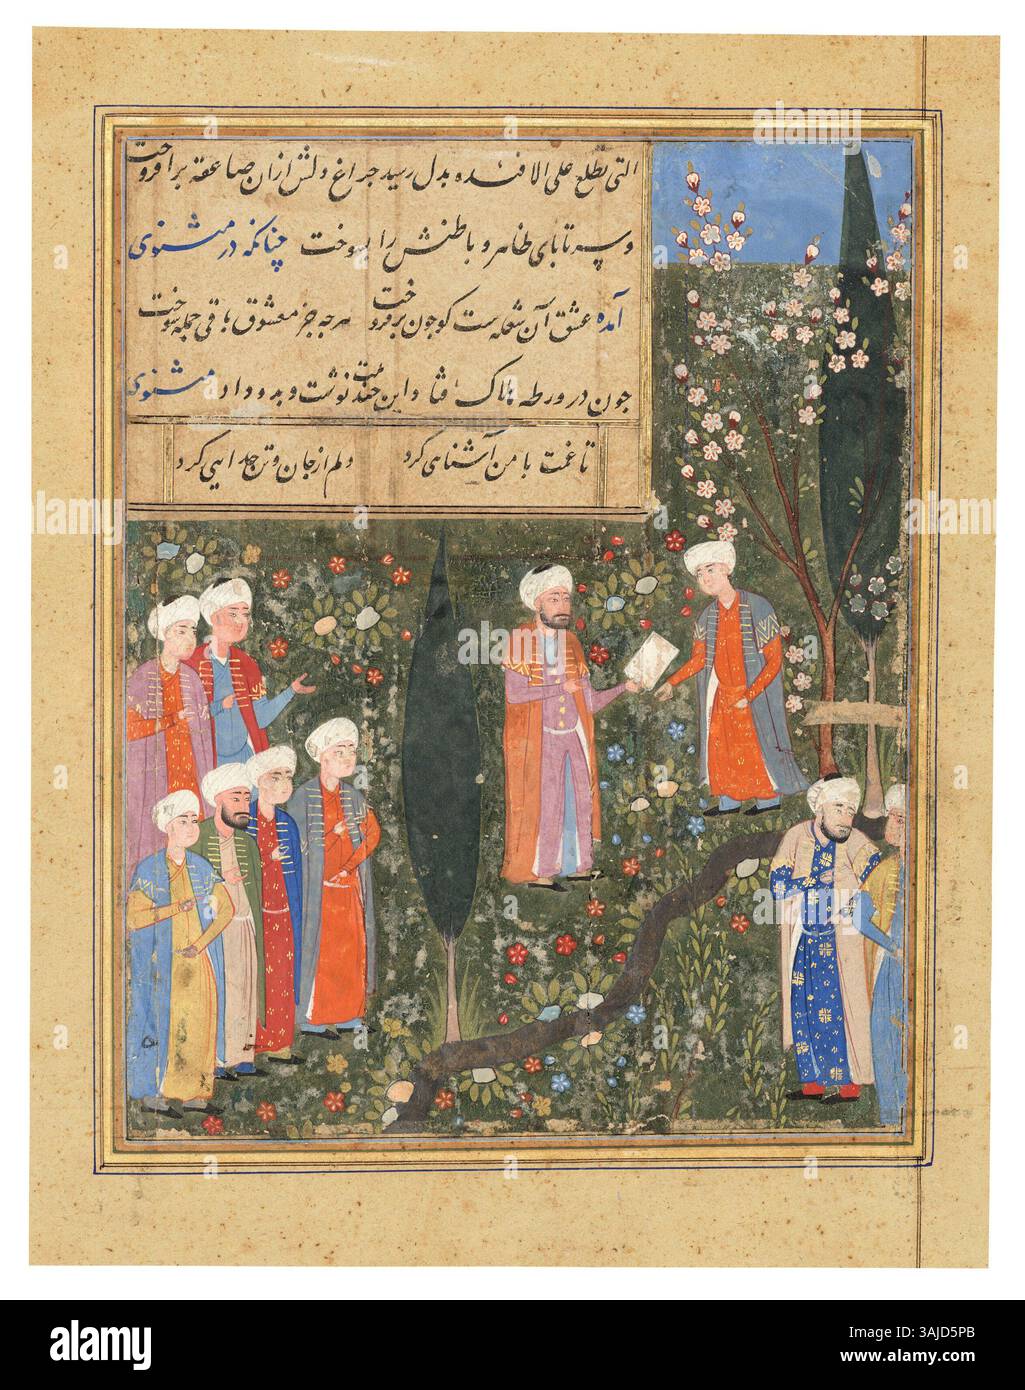 التی تطلع علی الافئده بدل رسید چراغ دلش ازان صاعقه برافروخت
و سر تا پای ظاهر و باطنش را بسوخت چنانکه در مثنوی
آمده عشق آن شعله‌ست کو چون برفروخت هرچه جز معشوق باقی جمله سوخت
چون در ورطه هلاک افتاد این نوشت و بدو داد مثنوی
تا غمت با من آشنایی کرد دلم از جان و تن جدایی کرد
alamy
Image ID: 3AJD5PB
www.alamy.com